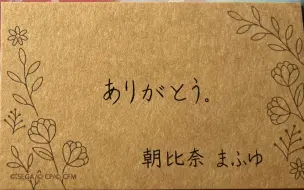 ありがとう。
朝比奈 まふゆ
©SEGA © CP/© CFM